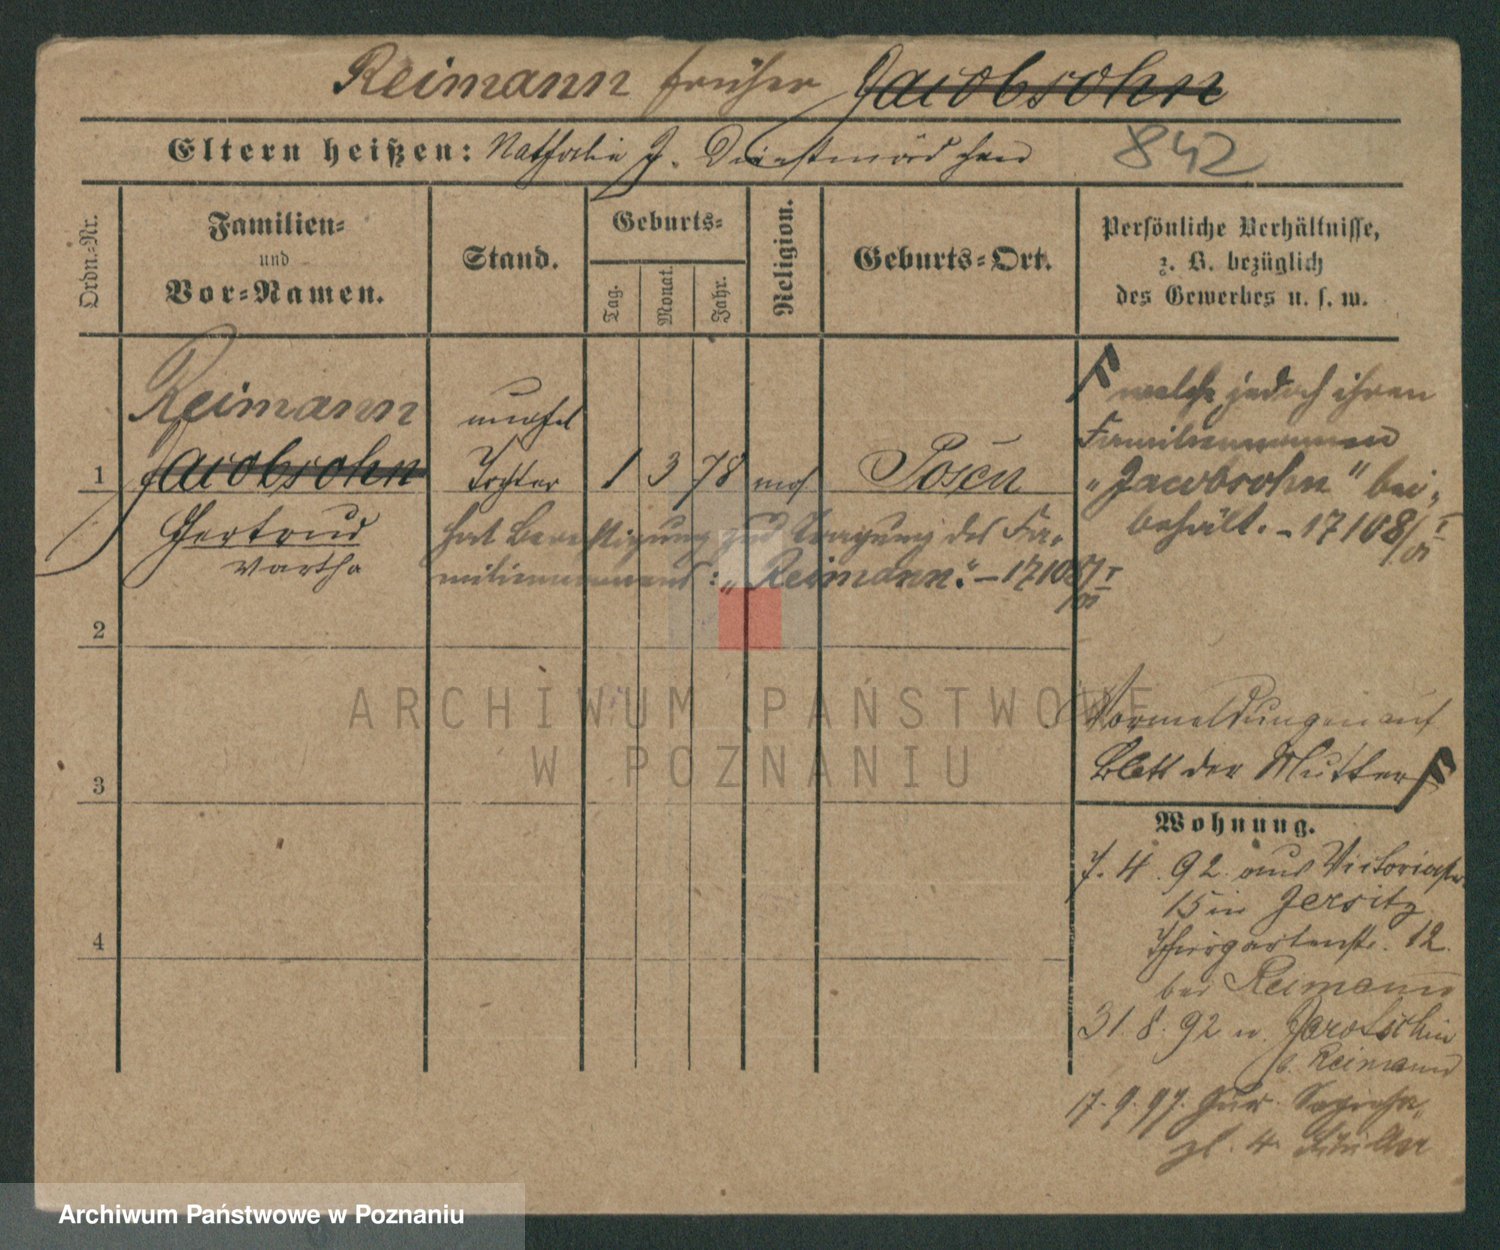 Reimann früher Jacobsohn
Eltern heißen: Nathalie J. Dienstmädchen 842
Ordn.-Nr.
Familien-
und
Vor-Namen.
Stand.
Geburts-
Tag.
Monat.
Jahr.
Religion.
Geburts-Ort.
Persönliche Verhältnisse,
z. B. bezüglich
des Gewerbes u. s. w.
Reimann
1 Jacobsohn
Gertrud
Martha
unehel
Tochter 1 3 78 mos Posen
hat Berechtigung zur Tragung des Fa-
miliennamens: „Reimann." - 17108/
welche jedoch ihren
Familiennamen
„Jacobsohn" bei-
behält. - 17108/
2
3
4
Vormeldungen auf
Blatt der Mutter
Wohnung.
7. 4. 92 aus Victoriastr.
15 in Jersitz
Thiergartenstr. 12.
bei Reimann
31. 8. 92 n. Jarotschin
b. Reimann
17. 9. 97.
pl. 4.
ARCHIWUM PAŃSTWOWE
W POZNANIU
Archiwum Państwowe w Poznaniu